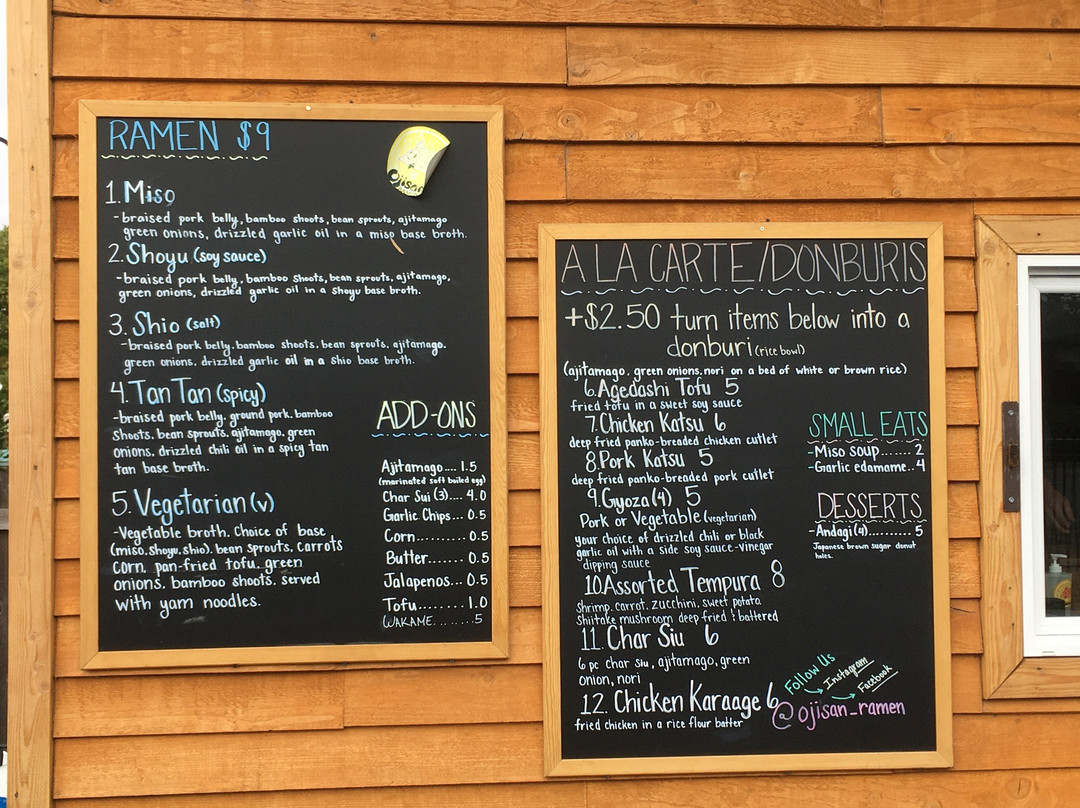 RAMEN $9
Ojisan
1. Miso
-braised pork belly, bamboo shoots, bean sprouts, ajitamago
green onions, drizzled garlic oil in a miso base broth.
2. Shoyu (soy sauce)
-braised pork belly, bamboo shoots, bean sprouts, ajitamago,
green onions, drizzled garlic oil in a shoyu base broth.
3. Shio (salt)
-braised pork belly, bamboo shoots, bean sprouts, ajitamago.
green onions, drizzled garlic oil in a shio base broth.
4. Tan Tan (spicy)
-braised pork belly, ground pork, bamboo
shoots, bean sprouts, ajitamago, green
onions, drizzled chili oil in a spicy tan
tan base broth.
5. Vegetarian (v)
-Vegetable broth. Choice of base
(miso, shoyu, shio), bean sprouts, carrots
corn, pan-fried tofu, green
onions, bamboo shoots. served
with yam noodles.
ADD-ONS
Ajitamago.... 1.5
(marinated soft boiled egg)
Char Sui (3).... 4.0
Garlic Chips... 0.5
Corn........ 0.5
Butter....... 0.5
Jalapenos... 0.5
Tofu........ 1.0
WAKAME....... .5
A LA CARTE/DONBURIS
+$2.50 turn items below into a
donburi (rice bowl)
(ajitamago, green onions, nori on a bed of white or brown rice)
6. Agedashi Tofu 5
fried tofu in a sweet soy sauce
7. Chicken Katsu 6
deep fried panko-breaded chicken cutlet
8. Pork Katsu 5
deep fried panko-breaded pork cutlet
9. Gyoza (4) 5
Pork or Vegetable (vegetarian)
your choice of drizzled chili or black
garlic oil with a side soy sauce-vinegar
dipping sauce
10. Assorted Tempura 8
Shrimp, carrot, zucchini, sweet potato,
Shiitake mushroom deep fried & battered
11. Char Siu 6
6 pc char siu, ajitamago, green
onion, nori
12. Chicken Karaage 6
fried chicken in a rice flour batter
SMALL EATS
-Miso soup....... 2
-Garlic edamame.. 4
DESSERTS
-Andagi (4).......... 5
Japanese brown sugar donut
holes.
Follow Us
Instagram
Facebook
@ojisan_ramen